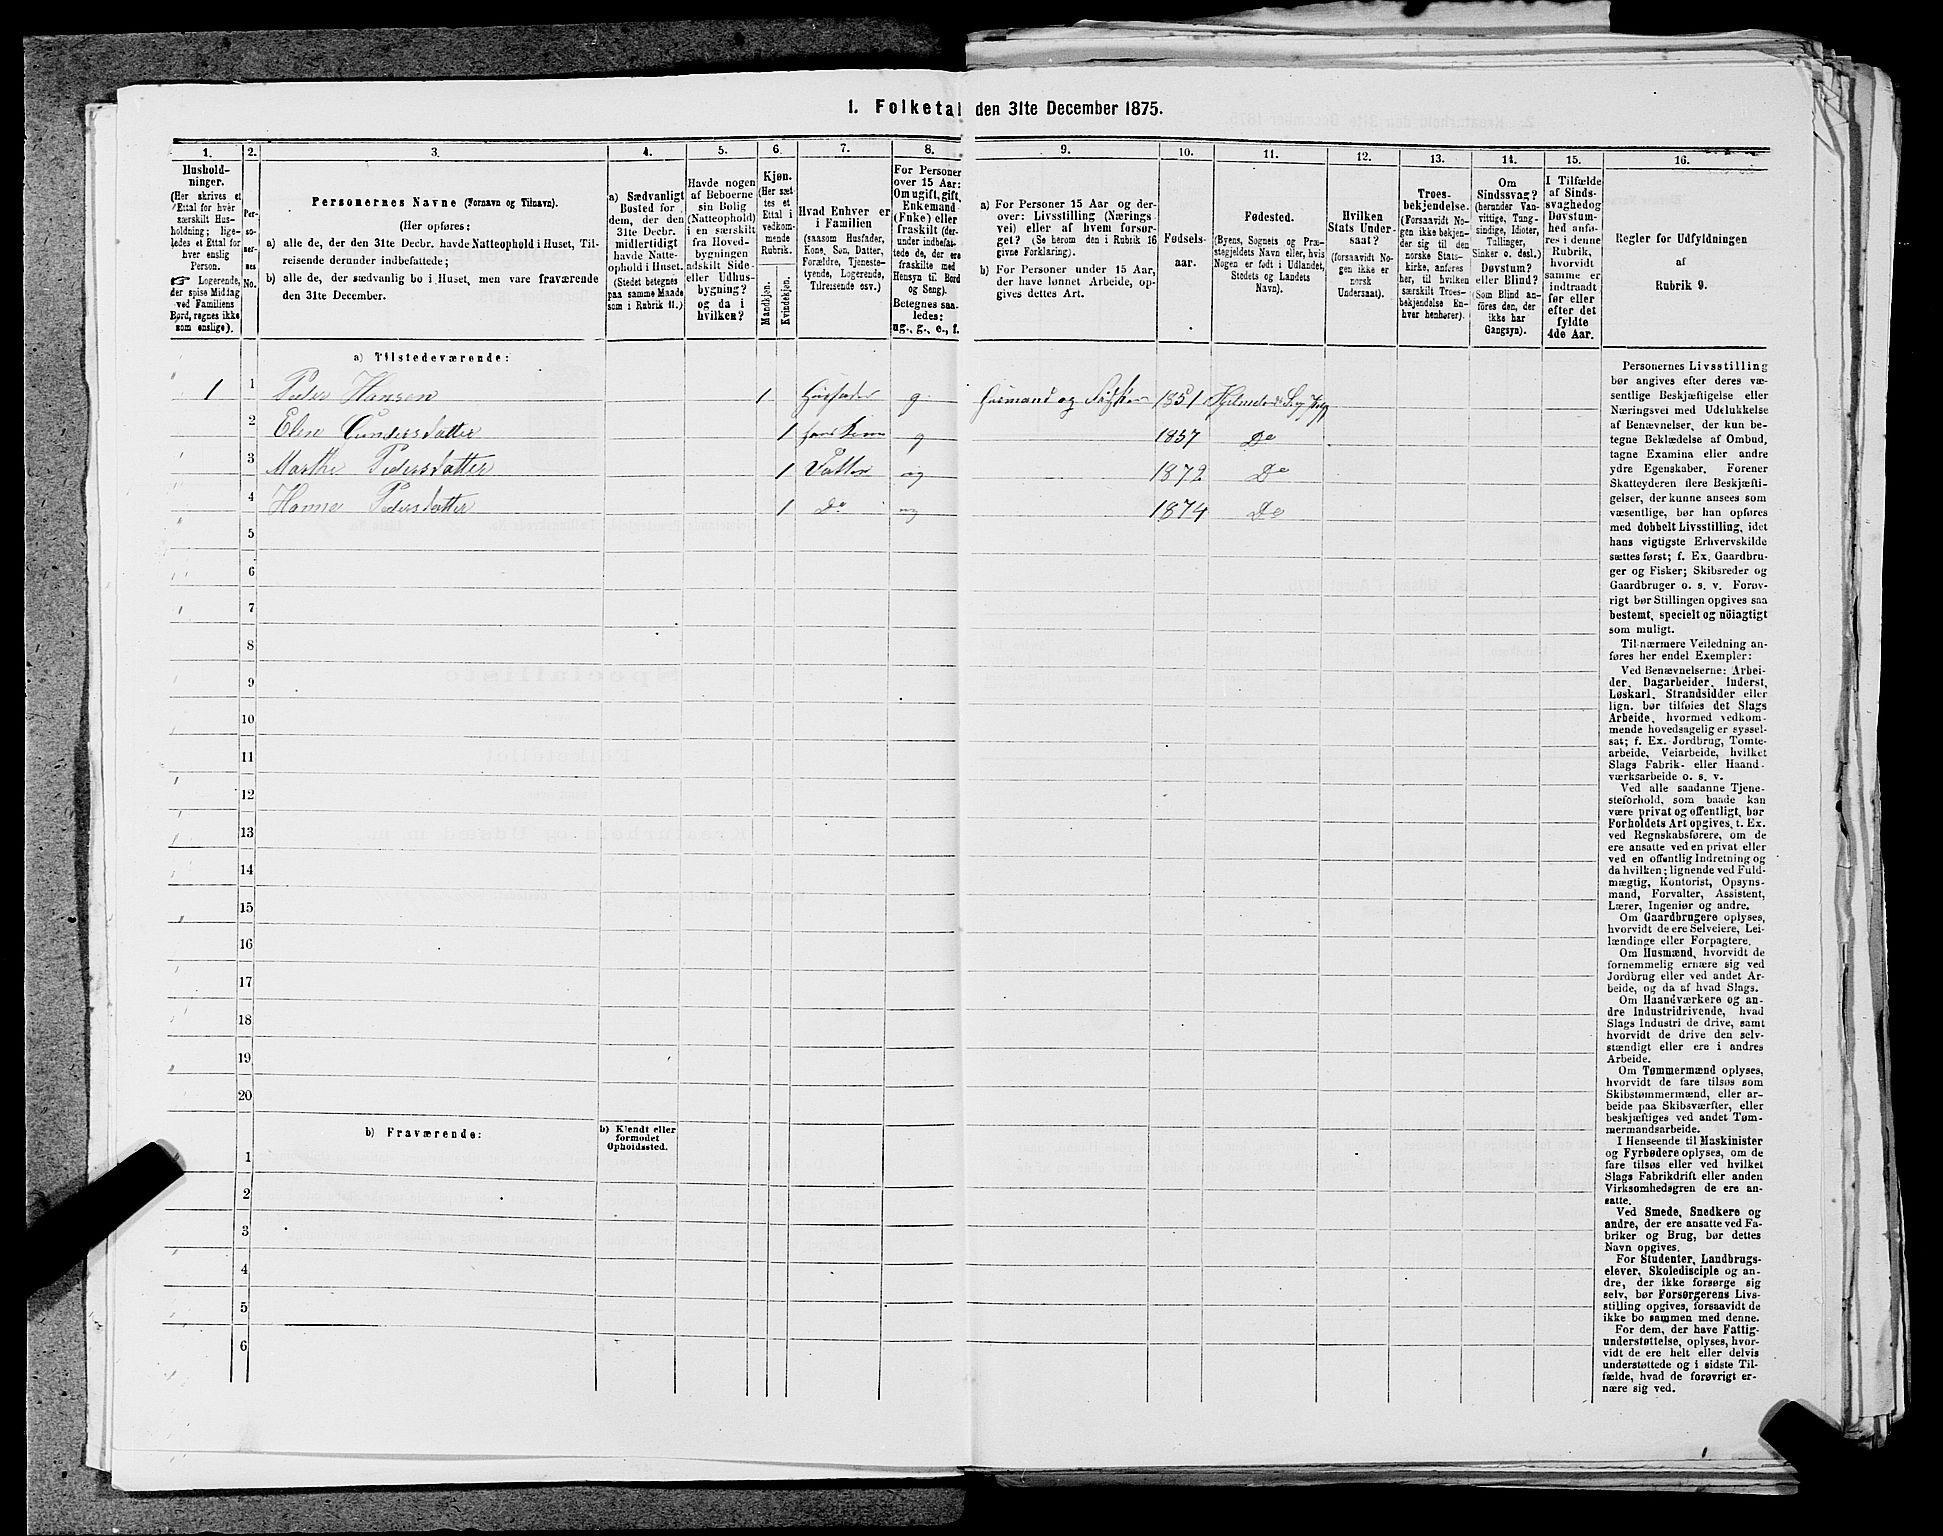 1. Folketal den 31te December 1875.
1. 2. 3. 4. 5. 6. 7. 8. 9. 10. 11. 12. 13. 14. 15. 16.
Hushold-
ninger.
(Her skrives et
Ettal for hver
særskilt Hus-
holdning; lige-
ledes et Ettal for
hver enslig
Person.
☞ Logerende,
der spise Middag
ved Familiens
Bord, regnes ikke
som enslige).
Per-
so-
ner-
nes
No.
Personernes Navne (Fornavn og Tilnavn).
(Her opføres:
a) alle de, der den 31te Decbr. havde Natteophold i Huset, Til-
reisende derunder indbefattede;
b) alle de, der sædvanlig bo i Huset, men vare fraværende
den 31te December.
a) Sædvanligt
Bosted for
dem, der den
31te Decbr.
midlertidigt
havde Natte-
ophold i Huset.
(Stedet betegnes
paa samme Maade
som i Rubrik 11.)
Havde nogen
af Beboerne
sin Bolig
(Natteophold)
i en særskilt
fra Hoved-
bygningen
adskilt Side-
eller Udhus-
bygning?
og da i
hvilken?
Kjøn.
(Her sæt-
tes et
Ettal i
vedkom-
mende
Rubrik.
Mandkjøn.
Kvindekjøn.
Hvad Enhver er
i Familien
(saasom Husfader,
Kone, Søn, Datter,
Forældre, Tjeneste-
tyende, Logerende,
Tilreisende osv.)
For Personer
over 15 Aar:
Om ugift, gift,
Enkemand
(Enke) eller
fraskilt (der-
under indbefat-
tede de, der ere
fraskilte med
Hensyn til Bord
og Seng).
Betegnes saa-
ledes:
ug., g., e., f.
a) For Personer 15 Aar og der-
over: Livsstilling (Nærings-
vei) eller af hvem forsør-
get? (Se herom den i Rubrik 16
givne Forklaring).
b) For Personer under 15 Aar,
der have lønnet Arbeide, op-
gives dettes Art.
Fødsels-
aar.
Fødested.
(Byens, Sognets og Præ-
stegjeldets Navn eller, hvis
Nogen er født i Udlandet,
Stedets og Landets
Navn).
Hvilken
Stats Under-
saat?
(forsaavidt No-
gen ikke er
norsk
Undersaat).
Troes-
bekjendelse.
(Forsaavidt No-
gen ikke bekjen-
der sig til den
norske Stats-
kirke, anføres
her, til hvilken
særskilt Troes-
bekjendelse En-
hver henhører).
Om
Sindssvag?
(herunder Van-
vittige, Tung-
sindige, Idioter,
Tullinger,
Sinker o. desl.)
Døvstum?
eller Blind?
(Som Blind an-
føres den, der
ikke har
Gangsyn).
I Tilfælde
af Sinds-
svaghed og
Døvstum-
hed anfø-
res i denne
Rubrik,
hvorvidt
samme er
indtraadt
før eller
efter det
fyldte
4de Aar.
Regler for Udfyldningen
af
Rubrik 9.
a) Tilstedeværende:
1 1 Peder Hansen 1 Husfader g. Husmand og 1851
2 Elen Gundersdatter 1 hans Kone g 1857 Do
3 Marthe Pedersdatter 1 Datter ug 1872 Do
4 Hanna Pedersdatter 1 Do ug 1874 Do
5
6
7
8
9
10
11
12
13
14
15
16
17
18
19
20
b) Fraværende:
b) Kjendt eller
formodet
Opholdssted.
1
2
3
4
5
6
Personernes Livsstilling
bør angives efter deres væ-
sentlige Beskjæftigelse eller
Næringsvei med Udelukkelse
af Benævnelser, der kun be-
tegne Beklædelse af Ombud,
tagne Examina eller andre
ydre Egenskaber. Forener
Skatteyderen flere Beskjæfti-
gelser, der kunne ansees som
væsentlige, bør han opføres
med dobbelt Livsstilling, idet
hans vigtigste Erhvervskilde
sættes først; f. Ex. Gaardbru-
ger og Fisker; Skibsreder og
Gaardbruger o. s. v. Forøv-
rigt bør Stillingen opgives saa
bestemt, specielt og nöiagtigt
som muligt.
Til nærmere Veiledning an-
føres her endel Exempler:
Ved Benævnelserne: Arbei-
der, Dagarbeider, Inderst,
Løskarl, Strandsidder eller
lign. bør tilføies det Slags
Arbeide, hvormed vedkom-
mende hovedsagelig er syssel-
sat; f. Ex. Jordbrug, Tomte-
arbeide, Veiarbeide, hvilket
Slags Fabrik- eller Haand-
værksarbeide o. s. v.
Ved alle saadanne Tjene-
steforhold, som baade kan
være privat og offentligt, bør
Forholdets Art opgives, t. Ex.
ved Regnskabsførere, om de
ere ansatte ved en privat eller
ved en offentlig Indretning og
da hvilken; lignende ved Fuld-
mægtig, Kontorist, Opsyns-
mand, Forvalter, Assistent,
Lærer, Ingeniør og andre.
Om Gaardbrugere oplyses,
hvorvidt de ere Selveiere, Lei-
lændinge eller Forpagtere.
Om Husmænd, hvorvidt de
fornemmelig ernære sig ved
Jordbrug eller ved andet Ar-
beide, og da af hvad Slags.
Om Haandværkere og an-
dre Industridrivende, hvad
Slags Industri de drive, samt
hvorvidt de drive den selv-
stændigt eller ere i andres
Arbeide.
Om Tømmermænd oplyses,
hvorvidt de fare tilsøs som
Skibstømmermænd, eller ar-
beide paa Skibsværfter, eller
beskjæftiges ved andet Tøm-
mermandsarbeide.
I Henseende til Maskinister
og Fyrbødere oplyses, om de
fare tilsøs eller ved hvilket
Slags Fabrikdrift eller anden
Virksomhedsgren de ere an-
satte.
Ved Smede, Snedkere og
andre, der ere ansatte ved Fa-
briker og Brug, bør dettes
Navn opgives.
For Studenter, Landbrugs-
elever, Skoledisciple og an-
dre, der ikke forsørge sig
selv, bør Forsørgerens Livs-
stilling opgives, forsaavidt de
ikke bo sammen med denne.
For dem, der have Fattig-
understøttelse, oplyses, hvor-
vidt de ere helt eller delvis
understøttede og i sidste Til-
fælde, hvad de forøvrigt er-
nære sig ved.